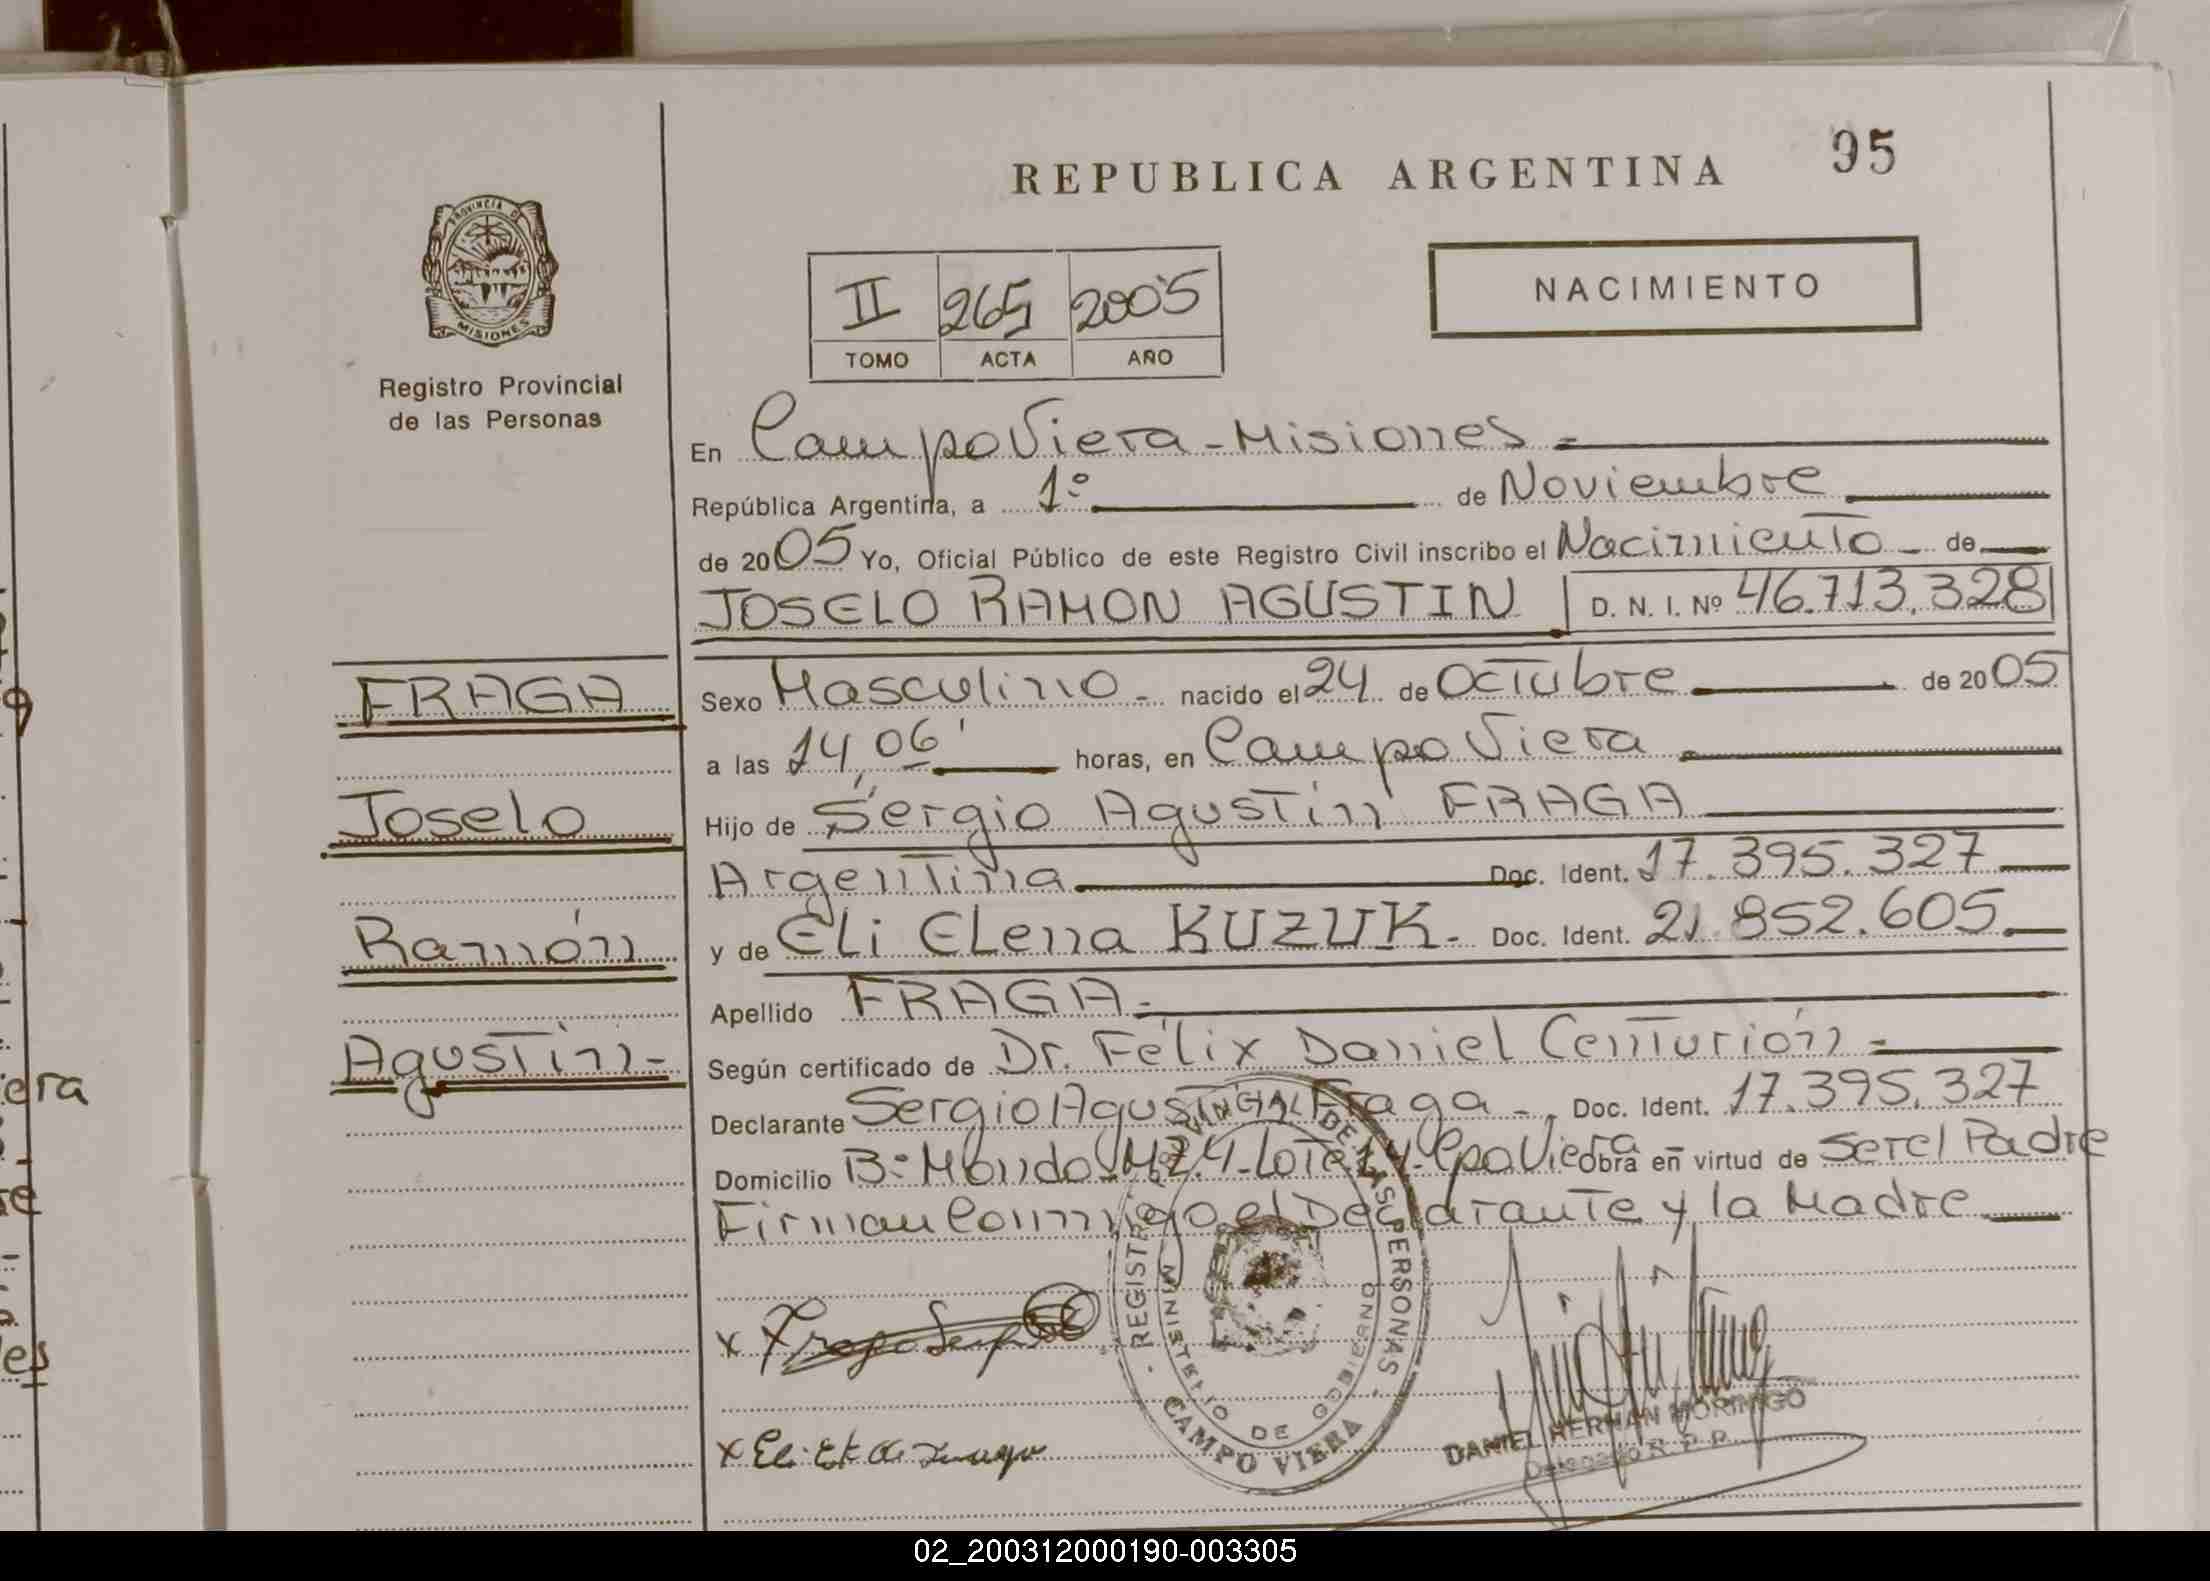 REPUBLICA ARGENTINA 95
PROVINCIA DE
MISIONES
Registro Provincial
de las Personas
II 265 2005
TOMO ACTA AÑO
NACIMIENTO
En Campo Viera - Misiones -
República Argentina, a 1º de Noviembre
de 2005 Yo, Oficial Público de este Registro Civil inscribo el Nacimiento - de
JOSELO RAMON AGUSTIN D. N. I. Nº 46.713.328
FRAGA
Joselo
Ramón
Agustín -
Sexo Masculino - nacido el 24 de Octubre de 2005
a las 14,06' horas, en Campo Viera
Hijo de Sergio Agustín FRAGA
Argentina Doc. Ident. 17.395.327
y de Eli Elena KUZUK - Doc. Ident. 21.852.605.
Apellido FRAGA -
Según certificado de Dr. Félix Daniel Centurión -
Declarante Sergio Agustín Fraga - Doc. Ident. 17.395.327
Domicilio Bº Mondo - MZ.4 - Lote 14 - Cpo Viera obra en virtud de Ser el Padre
Firman Conmigo el Declarante y la Madre
REGISTRO PROVINCIAL DE LAS PERSONAS
MINISTERIO DE GOBIERNO
CAMPO VIERA
x Fraga Sergio
x Eli
DANIEL HERNAN MORINIGO
Delegado R. P. P.
era
es
02_200312000190-003305